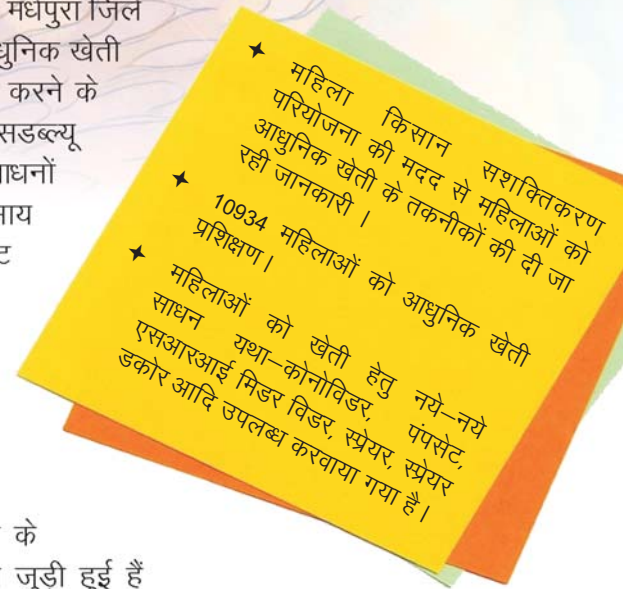 मधेपुरा जिले
धुनिक खेती
करने के
सडब्ल्यू
ाधनों
साय
ट
महिला किसान सशक्तिकरण
परियोजना की मदद से महिलाओं को
आधुनिक खेती के तकनीकों की दी जा
रही जानकारी ।
10934 महिलाओं को आधुनिक खेती
प्रशिक्षण।
महिलाओं को खेती हेतु नये–नये
साधन यथा–कोनोविडर, पंपसेट,
एसआरआई मिडर विडर, स्प्रेयर, स्प्रेयर
डकोर आदि उपलब्ध करवाया गया है।
के
जुड़ी हुई हैं